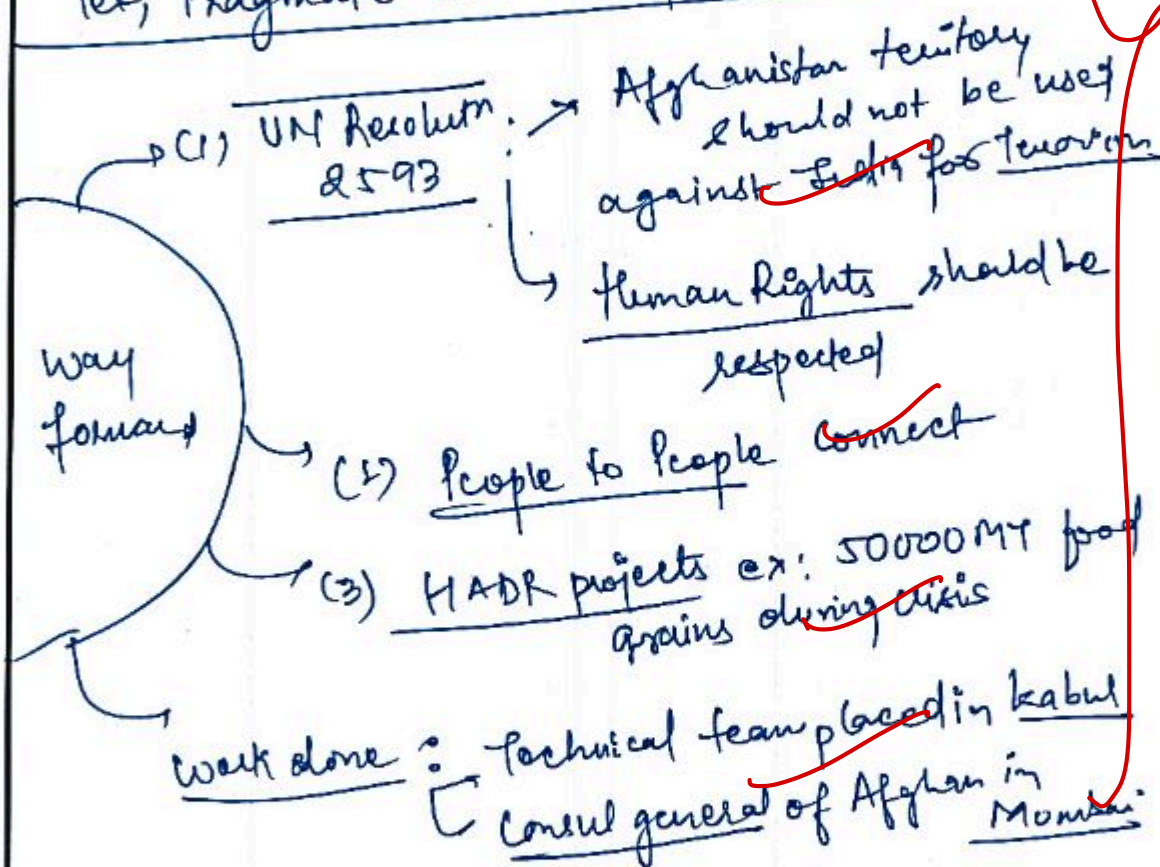 Yet, Pragmat
(1) UN Resolutn. Afghanistan territory
2593 should not be used
against India for Terrorism
Human Rights should be
respected
Way
forward
(2) People to People connect
(3) HADR projects ex: 50000MT food
grains during crisis
Work done : Technical team placed in Kabul
Consul general of Afghan in
Mumbai